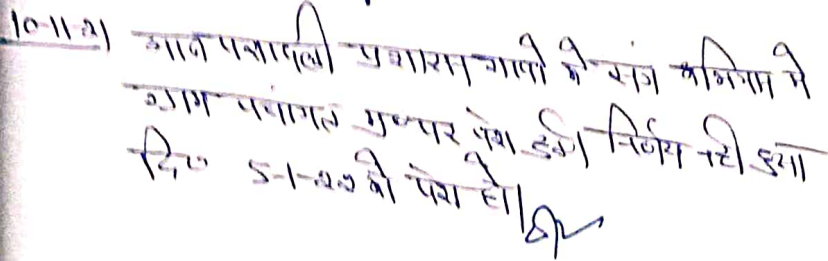 10-11-21 आज पत्रावली प्रशासन गावों के संग अभियान मे
ग्राम पंचायत पर पेश हुई। निर्णय नही हुआ
दि० 5-1-22 को पेश हो।